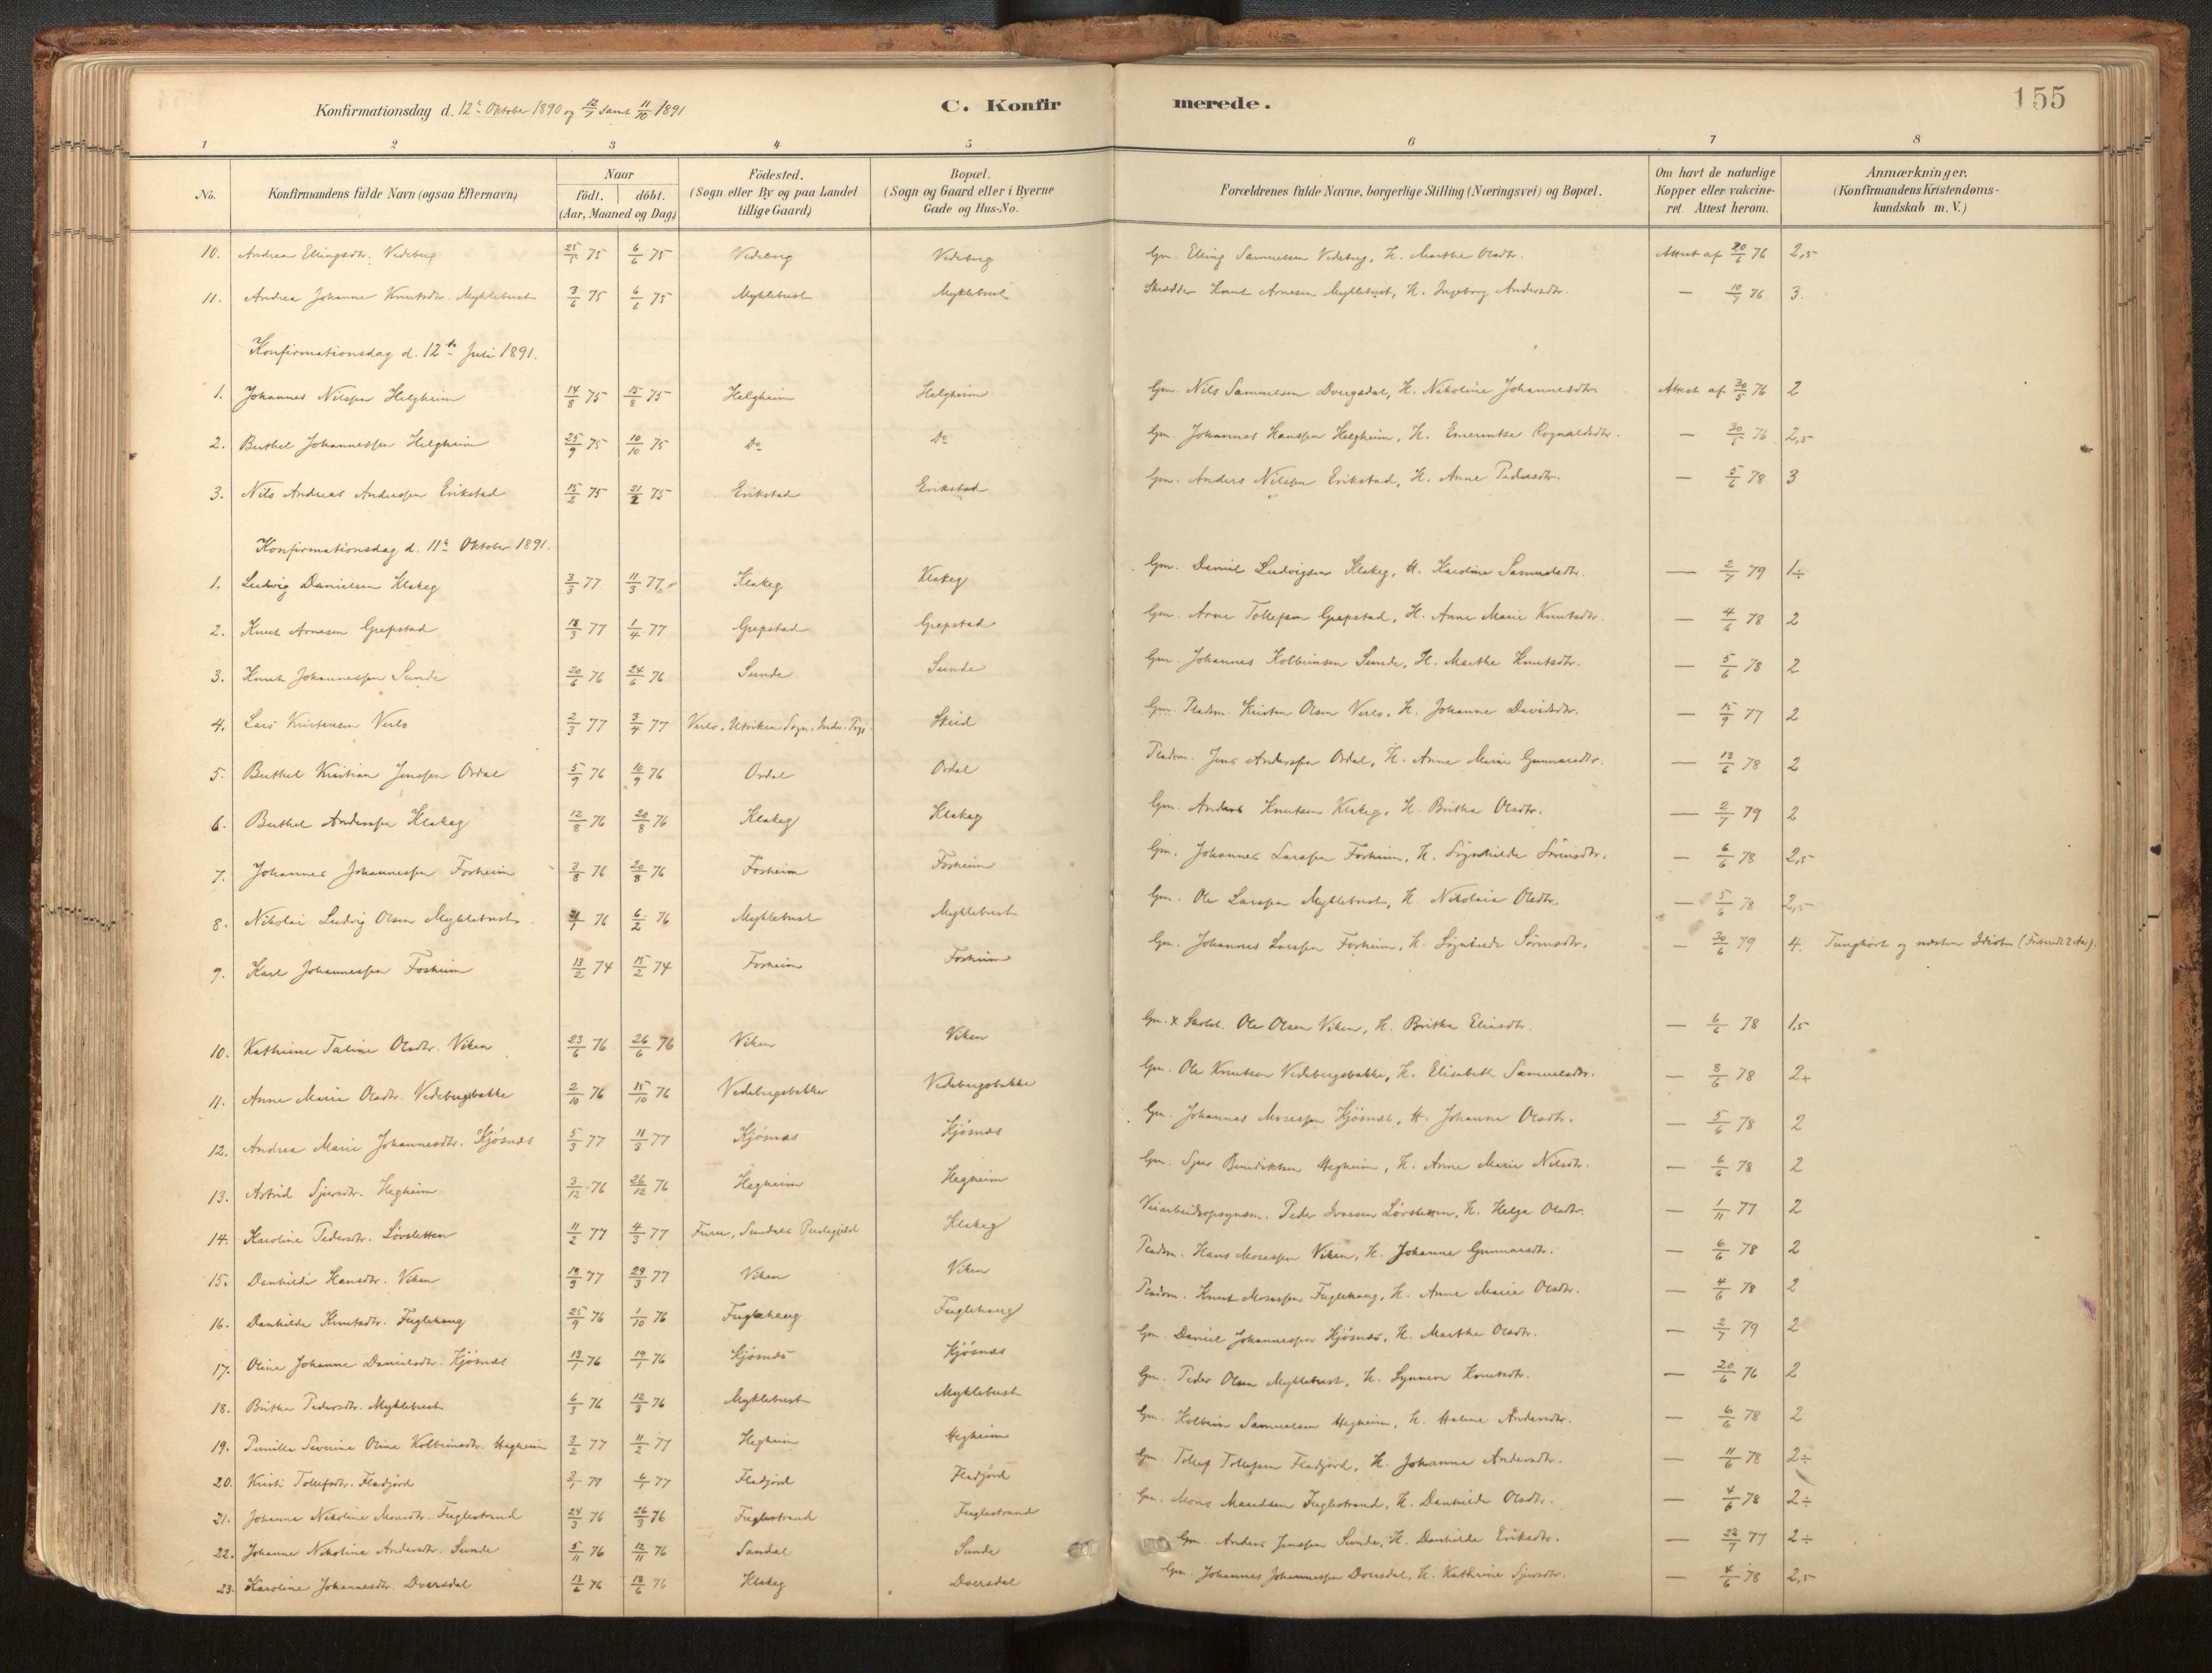 Konfirmationsdag d. 12te Oktober 1890 og 12/7 samt 11/10 1891
C. Konfirmerede.
155
1 2 3 4 5 6 7 8
No. Konfirmandens fulde Navn (ogsaa Efternavn) Naar født. døbt. (Aar, Maaned og Dag) Födested. (Sogn eller By og paa Landet tillige Gaard) Bopæl. (Sogn og Gaard eller i Byerne Gade og Hus-No. Forældrenes fulde Navne, borgerlige Stilling (Næringsvei) og Bopæl. Om havt de naturlige Kopper eller vakcineret. Attest herom. Anmærkninger. (Konfirmandens Kristendomskundskab m. V.)
10. Andrea Ellingsdtr. Vedeberg 25/5 75 6/6 75 Vedeberg Vedeberg Gm. Elling Samuelsen Vedeberg, H. Marthe Olsdtr. Attest af 20/6 76 2,5
11. Andrea Johanne Knutsdtr. Myklebust 3/6 75 6/6 75 Myklebust Myklebust Skrædder Knut Arnesen Myklebust, H. Ingeborg Andersdtr. — 10/7 76 3.
Konfirmationsdag d. 12te Juli 1891.
1. Johannes Nilssen Helgheim 14/8 75 15/8 75 Helgheim Helgheim Gm. Nils Samuelsen Dvergsdal, H. Nikoline Johannesdtr. Attest af 30/5 76 2
2. Berthel Johannessen Helgheim 25/9 75 10/10 75 Do Do Gm. Johannes Hanssen Helgheim, H. Emerentse Rognaldsdtr. — 30/5 76 2,5
3. Nils Andreas Anderssen Erikstad 15/2 75 21/2 75 Erikstad Erikstad Gm. Anders Nilssen Erikstad, H. Anne Pedersdtr. — 5/6 78 3
Konfirmationsdag d. 11te Oktober 1891.
1. Ludvig Danielsen Klakeg 3/3 77 11/3 77 Klakeg Klakeg Gm. Daniel Ludvigsen Klakeg, H. Karoline Samuelsdtr. — 2/7 79 1÷
2. Knut Arnesen Grepstad 18/3 77 1/4 77 Grepstad Grepstad Gm. Arne Tollefsen Grepstad, H. Anne Marie Knutsdtr. — 4/6 78 2
3. Knut Johannessen Sunde 20/6 76 24/6 76 Sunde Sunde Gm. Johannes Kolbeinsen Sunde, H. Marthe Knutsdtr. — 5/6 78 2
4. Lars Kristensen Verlo 2/3 77 3/4 77 Verlo, Utviken Sogn, Indv. Pgj. Skeid Gm. Pladsm. Kristen Olsen Verlo, H. Johanne Davidsdtr. — 15/9 77 2
5. Berthel Kristian Jenssen Ordal 5/9 76 10/9 76 Ordal Ordal Pladsm. Jens Anderssen Ordal, H. Anne Marie Gunnarsdtr. — 13/6 78 2
6. Berthel Anderssen Klakeg 12/8 76 20/8 76 Klakeg Klakeg Gm. Anders Knutsen Klakeg, H. Brithe Olsdtr. — 2/7 79 2
7. Johannes Johannessen Forheim 3/8 76 20/8 76 Forheim Forheim Gm. Johannes Larssen Forheim, H. Sørensdtr. — 6/6 78 2,5
8. Nikolai Ludvig Olsen Myklebust 76 6/2 76 Myklebust Myklebust Gm. Ole Larssen Myklebust, H. Nikolaia Olsdtr. — 5/6 78 2,5
9. Karl Johannessen Forheim 13/2 74 15/2 74 Forheim Forheim Gm. Johannes Larssen Forheim, H. Sørensdtr. — 30/6 79 4. Tunghørt og næsten Idiot
10. Kathrine Taline Olsdtr. Viken 23/6 76 26/6 76 Viken Viken Gm. & Skolel. Ole Olsen Viken, H. Brithe Eliasdtr. — 6/6 78 1,5
11. Anne Marie Olsdtr. Vedebergsbakke 2/10 76 15/10 76 Vedebergsbakke Vedebergsbakke Gm. Ole Knutsen Vedebergsbakke, H. Elisabeth Samuelsdtr. — 8/6 78 2+
12. Andrea Marie Johannesdtr. Kjösnæs 5/3 77 11/3 77 Kjösnæs Kjösnæs Gm. Johannes Mosessen Kjösnæs, H. Johanne Olsdtr. — 5/6 78 2
13. Astrid Sjursdtr. Hegheim 3/12 76 26/12 76 Hegheim Hegheim Gm. Sjur Benediktsen Hegheim, H. Anne Marie Nilsdtr. — 6/6 78 2
14. Karoline Pedersdtr. Løvsletten 11/2 77 4/3 77 Furu, Sundals Prestegjeld Klakeg Veiarbeidsopsynsm. Peder Ivarsen Løvsletten, H. Helga Olsdtr. — 1/11 77 2
15. Danhilde Hansdtr. Viken 18/3 77 29/3 77 Viken Viken Pladsm. Hans Mosessen Viken, H. Johanne Gunnarsdtr. — 6/6 78 2
16. Danhilde Knutsdtr. Fuglehaug 25/9 76 1/10 76 Fuglehaug Fuglehaug Pladsm. Knut Mosessen Fuglehaug, H. Anne Marie Olsdtr. — 4/6 78 2
17. Oline Johanne Danielsdtr. Kjösnæs 13/1 76 19/1 76 Kjösnæs Kjösnæs Gm. Daniel Johannessen Kjösnæs, H. Marthe Olsdtr. — 2/7 79 2
18. Brithe Pedersdtr. Myklebust 6/3 76 12/3 76 Myklebust Myklebust Gm. Peder Olsen Myklebust, H. Synneve Knutsdtr. — 20/6 76 2
19. Pernille Severine Oline Kolbeinsdtr. Hegheim 3/2 77 11/2 77 Hegheim Hegheim Gm. Kolbein Samuelsen Hegheim, H. Malene Andersdtr. — 6/6 78 2
20. Kristi Tollefsdtr. Fladjord 3/1 77 6/1 77 Fladjord Fladjord Gm. Tollef Tollefsen Fladjord, H. Johanne Andersdtr. — 11/6 78 2÷
21. Johanne Nikoline Monsdtr. Fuglestrand 24/3 76 26/3 76 Fuglestrand Fuglestrand Gm. Mons Fuglestrand, H. Danhilde Olsdtr. — 4/6 78 2÷
22. Johanne Nikoline Andersdtr. Sunde 5/11 76 12/11 76 Sandal Sunde Gm. Anders Jenssen Sunde, H. Danhilde Eriksdtr. — 22/7 77 2÷
23. Karoline Johannesdtr. Dversdal 13/6 76 18/6 76 Klakeg Dversdal Gm. Johannes Johannessen Dversdal, H. Kathrine Sjursdtr. — 4/6 78 2,5